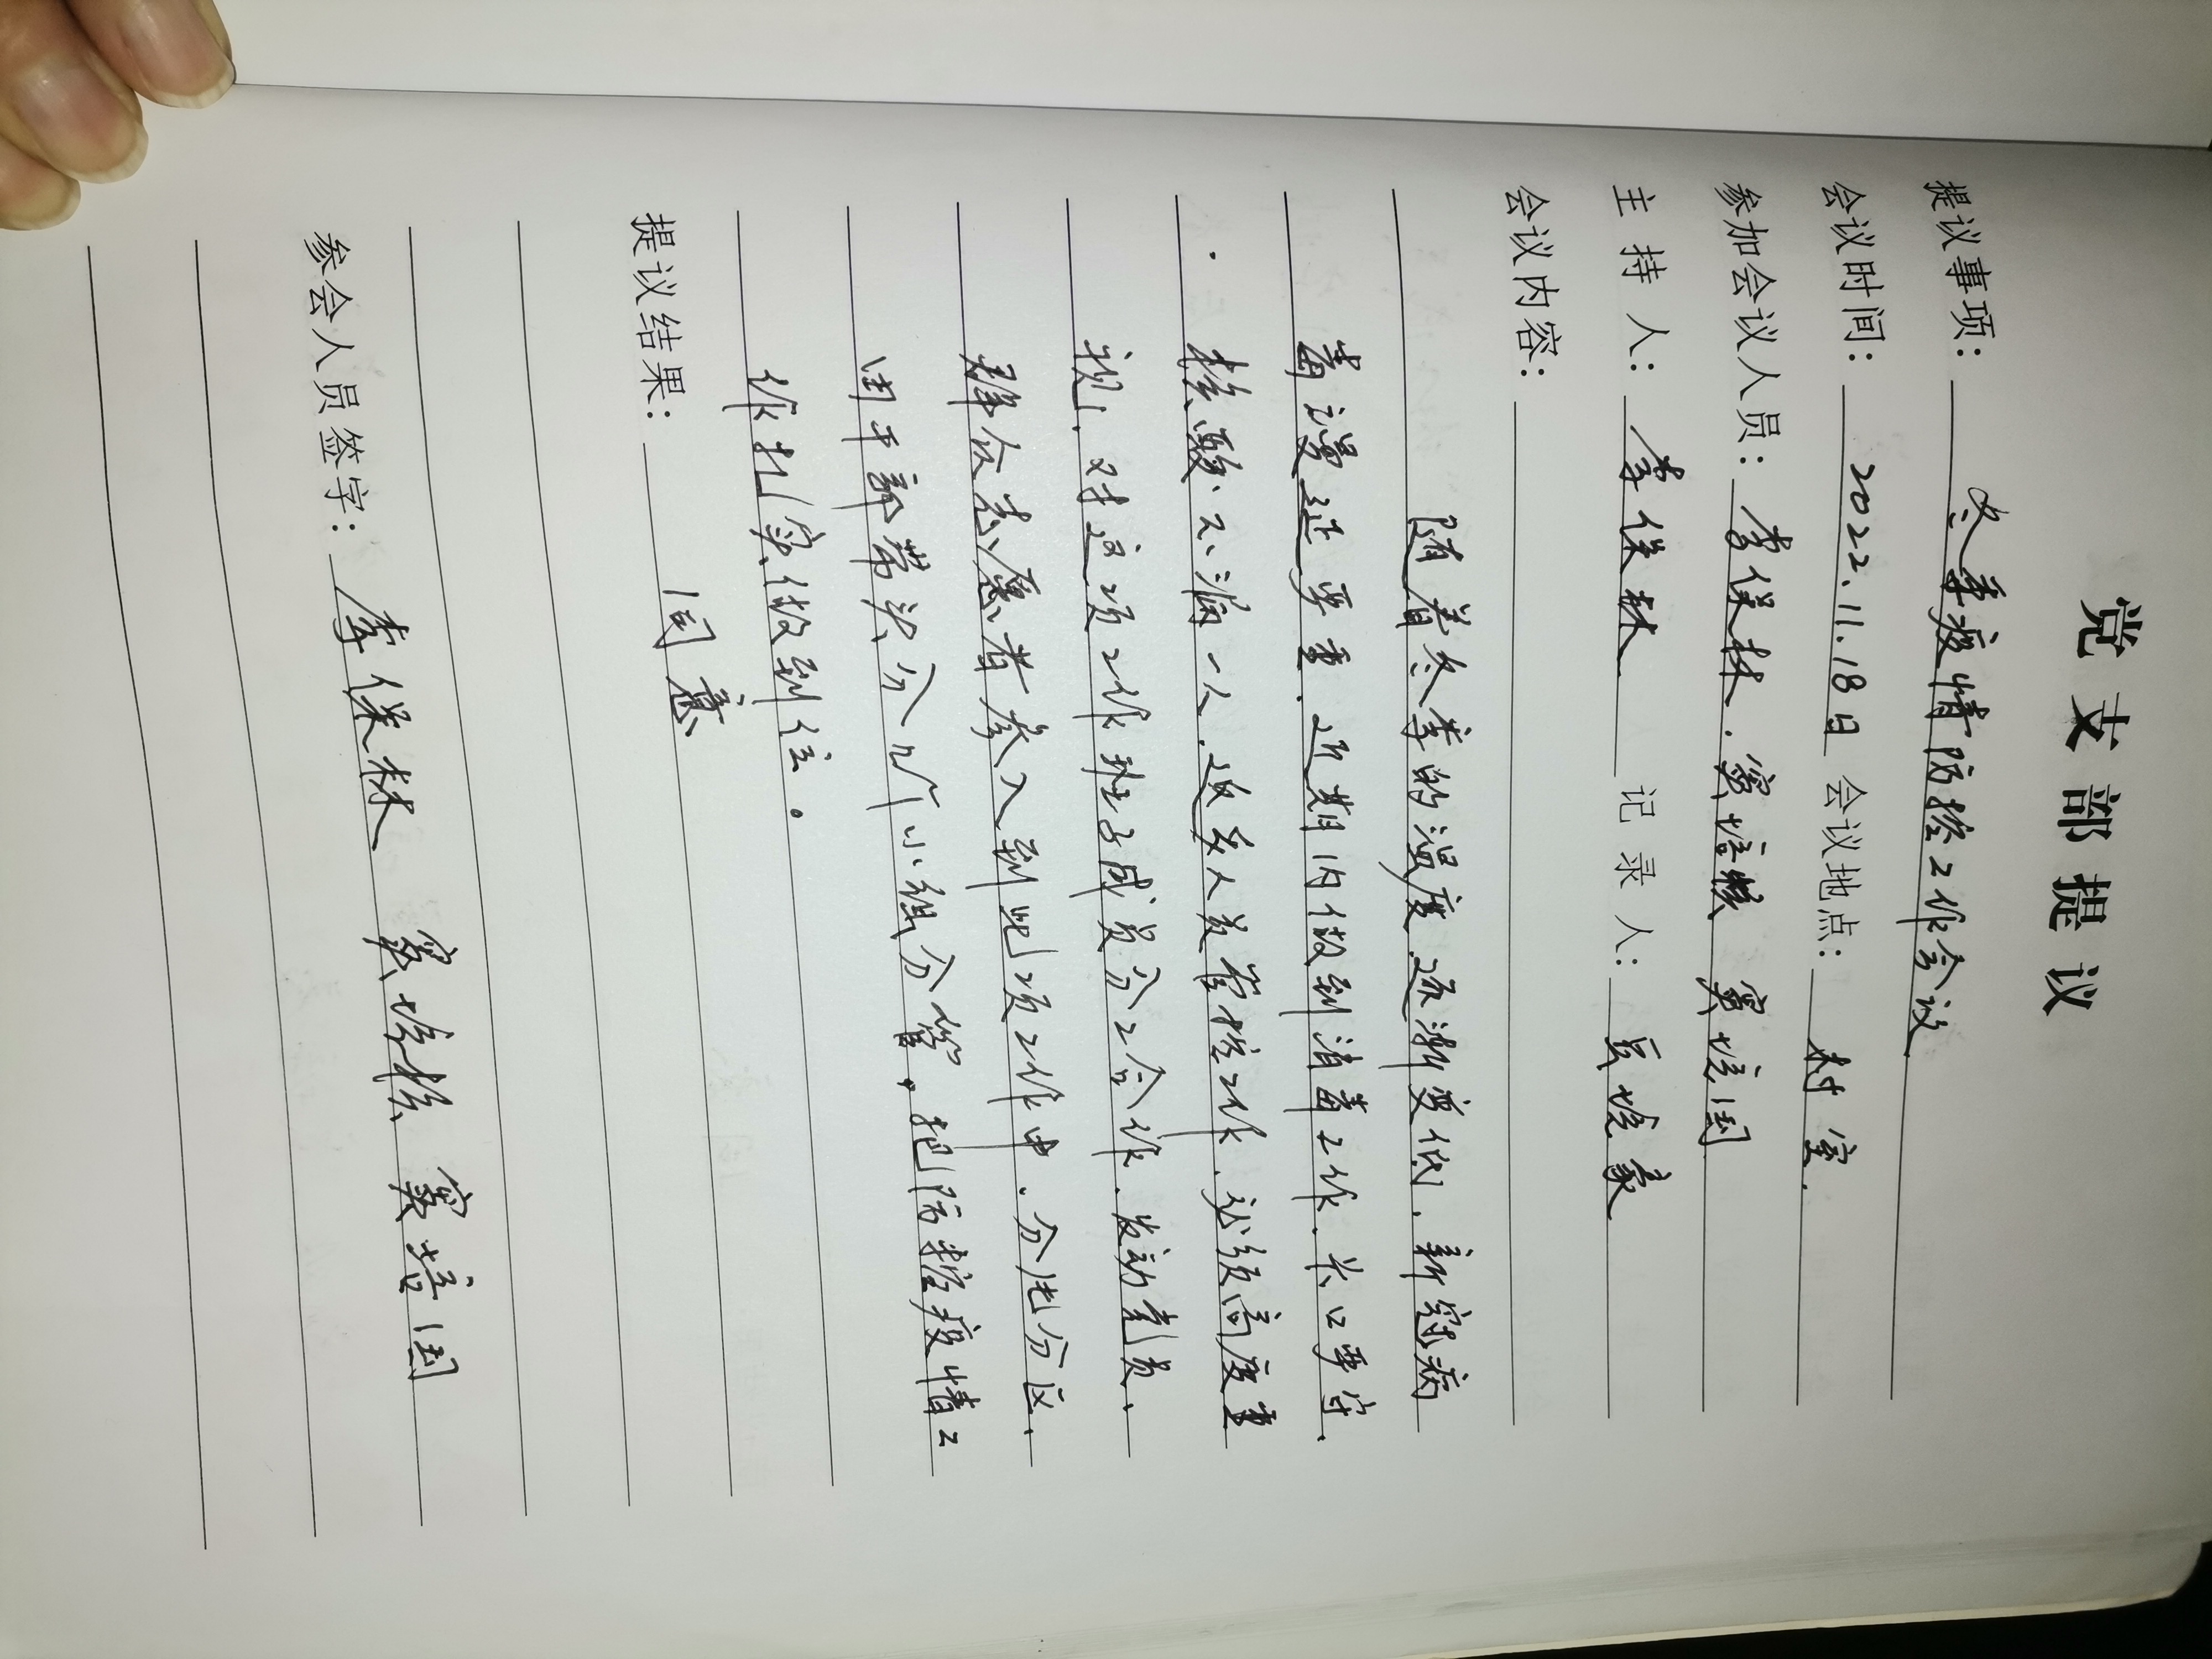 党支部提议
提议事项： 冬季疫情防控工作会议
会议时间： 2022.11.18日 会议地点： 村室.
参加会议人员： 李保林.窦培核 窦培国
主持人： 李保林 记录人： 豆培豪
会议内容：
随着冬季的温度逐渐变低.新冠病
毒漫延严重.近期内做到消毒工作.关口严守.
核酸不漏一人.返乡人员管控工作.必须高度重
视.对这项工作班子成员分工合作.发动党员.
群众志愿者参入到此项工作中.分片分区.
由干部带头分几个小组分管。把防控疫情工
作扎实做到位。
提议结果： 同意
参会人员签字： 李保林 窦培核 窦培国